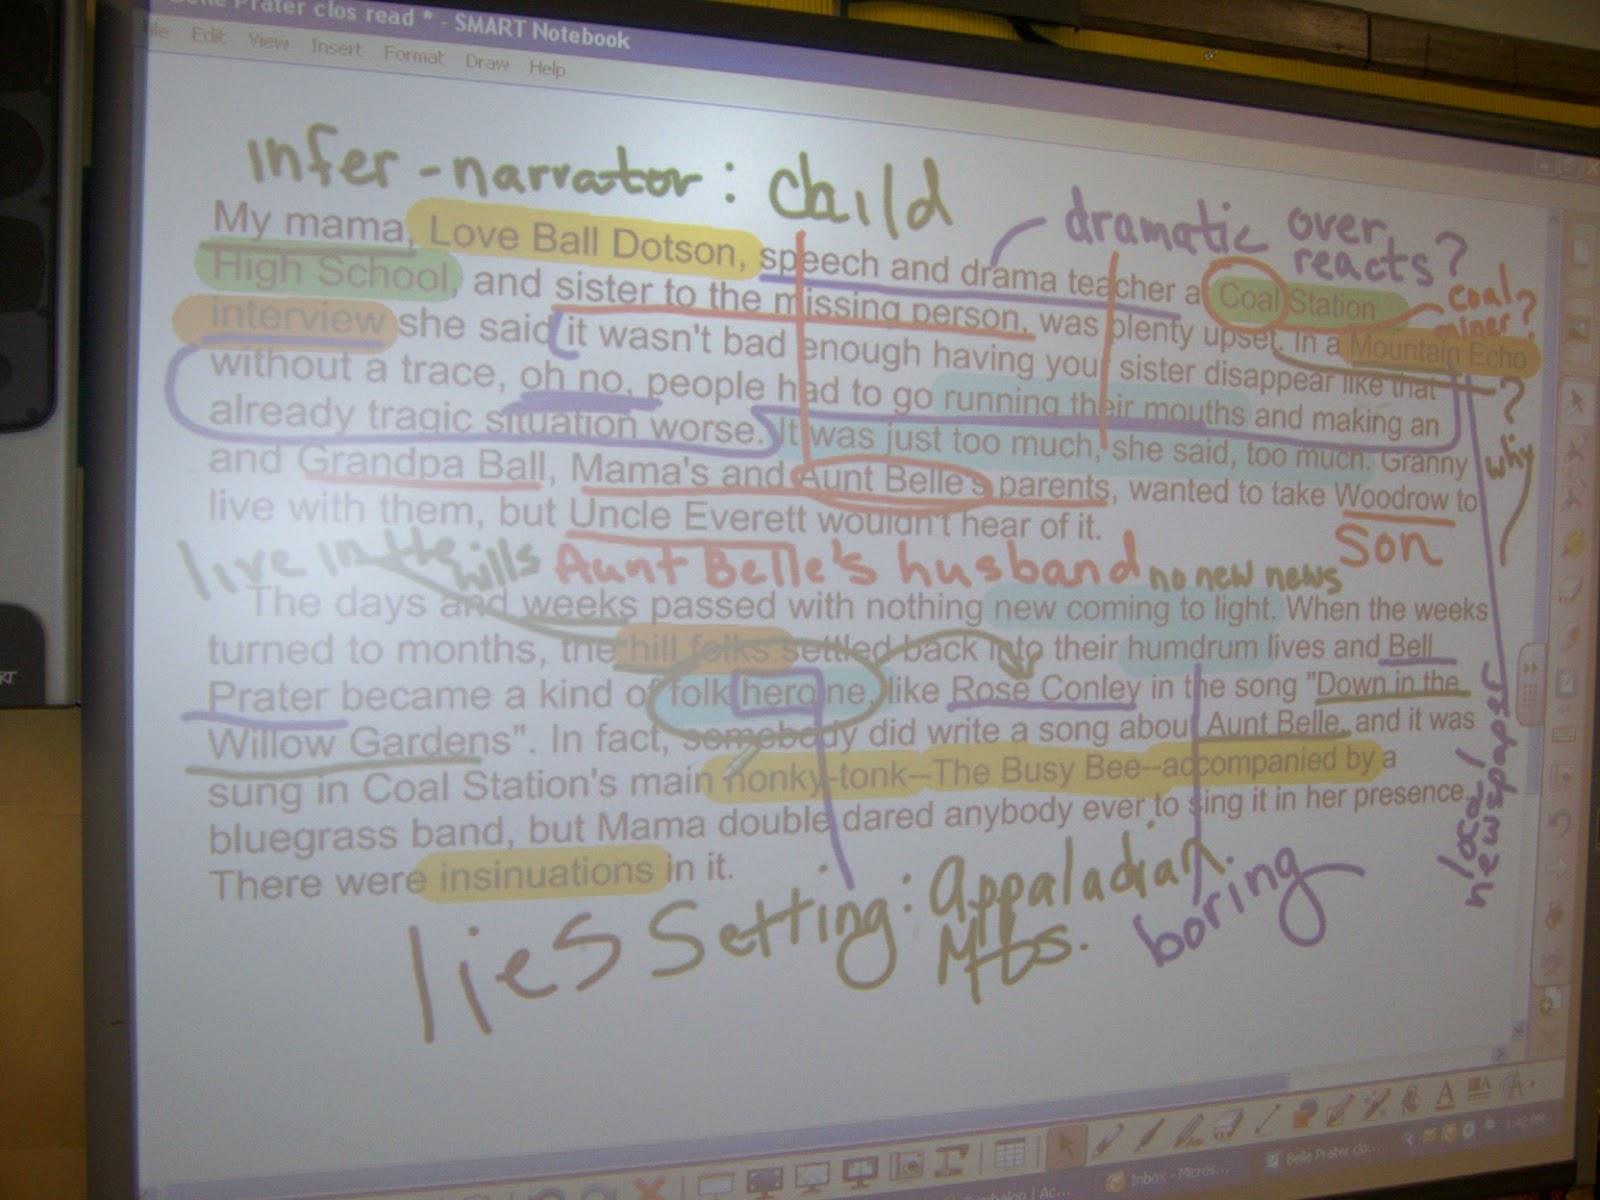 Belle Prater clos read * - SMART Notebook
File Edit View Insert Format Draw Help
infer - narrator : child
dramatic over
reacts?
My mama, Love Ball Dotson, speech and drama teacher a Coal Station
High School, and sister to the missing person, was plenty upset. In a Mountain Echo
interview she said it wasn't bad enough having your sister disappear like that
without a trace, oh no, people had to go running their mouths and making an
already tragic situation worse. It was just too much, she said, too much. Granny
and Grandpa Ball, Mama's and Aunt Belle's parents, wanted to take Woodrow to
live with them, but Uncle Everett wouldn't hear of it.
coal
miner?
?
why
son
live in the hills
Aunt Belle's husband
no new news
The days and weeks passed with nothing new coming to light. When the weeks
turned to months, the hill folks settled back into their humdrum lives and Bell
Prater became a kind of folk heroine, like Rose Conley in the song "Down in the
Willow Gardens". In fact, somebody did write a song about Aunt Belle, and it was
sung in Coal Station's main honky-tonk--The Busy Bee--accompanied by a
bluegrass band, but Mama double dared anybody ever to sing it in her presence.
There were insinuations in it.
local
newspaper
lies
Setting: Appaladian
Mts.
boring
Inbox - Micros...
Belle Prater clo...
1:42 PM